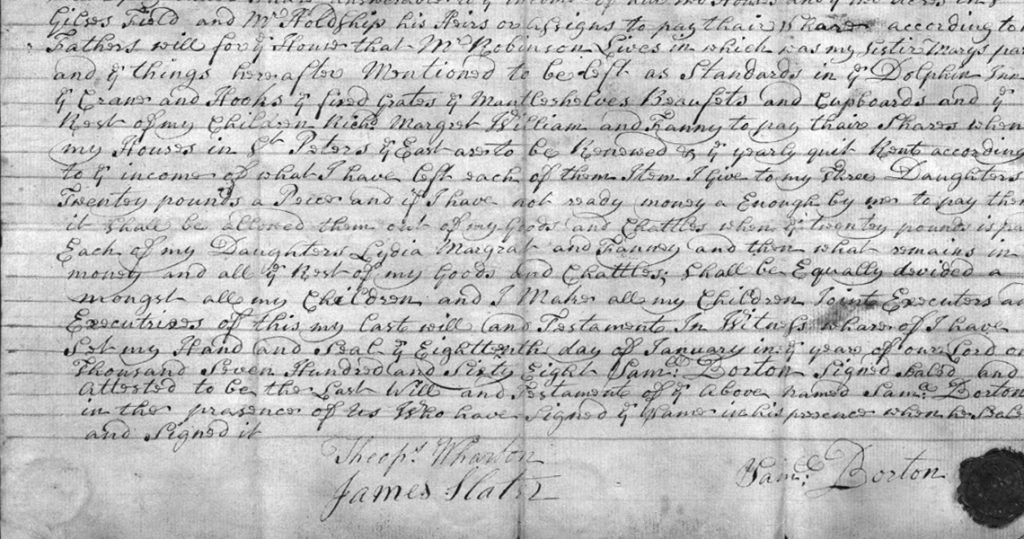 Giles Field and Mr Holdship his Heirs or Assigns to pay thair Share according to
Fathers will for ye House that Mr Robinson Lives in which was my Sister Marys pa
and ye things hereafter Mentioned to be left as Standards in ye Dolphin Inn
ye Crane and Hooks ye fixed Grates ye Mantleshelves Beaufets and Cupboards and ye
Rest of my Children Richd Margret William and Fanny to pay thair Shares when
my Houses in St Peters ye East are to be Renewed & ye yearly quit Rent according
to ye income of what I have left each of them Item I Give to my three Daughters
Twenty pounds a Peice and if I have not ready money a Enough by me to pay them
it shall be allowed them out of my Goods and Chattles when ye twenty pounds is pa
Each of my Daughters Lydia Margrat and Fanney and then what remains in
money and all ye Rest of my Goods and Chattles; shall be Equally devided a
mongst all my Children and I Make all my Children Joint Executers an
Executrixes of this my Last will and Testament In Witness whare of I have
Set my Hand and Seal ye Eighttenth day of January in ye year of our Lord on
Thousand Seven Hundred and Sixty Eight Saml: Borton Signed Sealed and
Attested to be the Last Will and Testament of ye Above named Saml Borton
in the presance of us Who have Signed ye Same in his presence when he Seale
and Signed it
Theops Wharton
James Slater
Saml: Borton